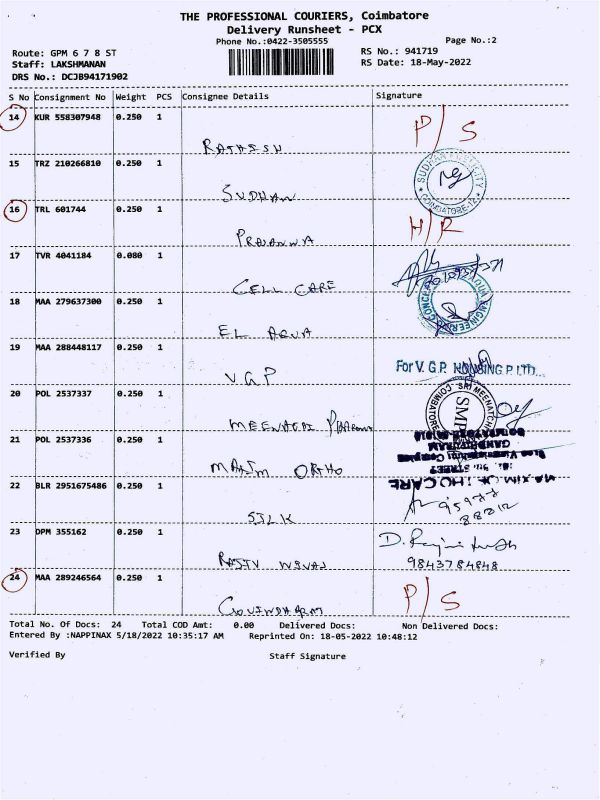 THE PROFESSIONAL COURIERS, Coimbatore
Delivery Runsheet - PCX
Phone No.:0422-3505555
Page No.:2
Route: GPM 6 7 8 ST
RS No.: 941719
Staff: LAKSHMANAN
RS Date: 18-May-2022
DRS No.: DCJB94171902
S No Consignment No Weight PCS Consignee Details Signature
14 KUR 558307948 0.250 1 P/S
RAJHESH
15 TRZ 210266810 0.250 1
SUDHAN
COIMBATORE-12
16 TRL 601744 0.250 1 H/R
17 TVR 4041184 0.080 1
CELL CARE
18 MAA 279637300 0.250 1
EL AQUA
19 MAA 288448117 0.250 1
VGP
For V.G.P. HOUSING P. LTD.
20 POL 2537337 0.250 1
MEENATCHI
SMP
21 POL 2537336 0.250 1
MAXIM ORTHO
MAXIM ORTHO CARE
22 BLR 2951675486 0.250 1
SILK
95977
88212
23 DPM 355162 0.250 1
RAJIV
9843784848
24 MAA 289246564 0.250 1 P/S
GOVINDHARAJ
Total No. Of Docs: 24 Total COD Amt: 0.00 Delivered Docs: Non Delivered Docs:
Entered By :NAPPINAX 5/18/2022 10:35:17 AM Reprinted On: 18-05-2022 10:48:12
Verified By Staff Signature